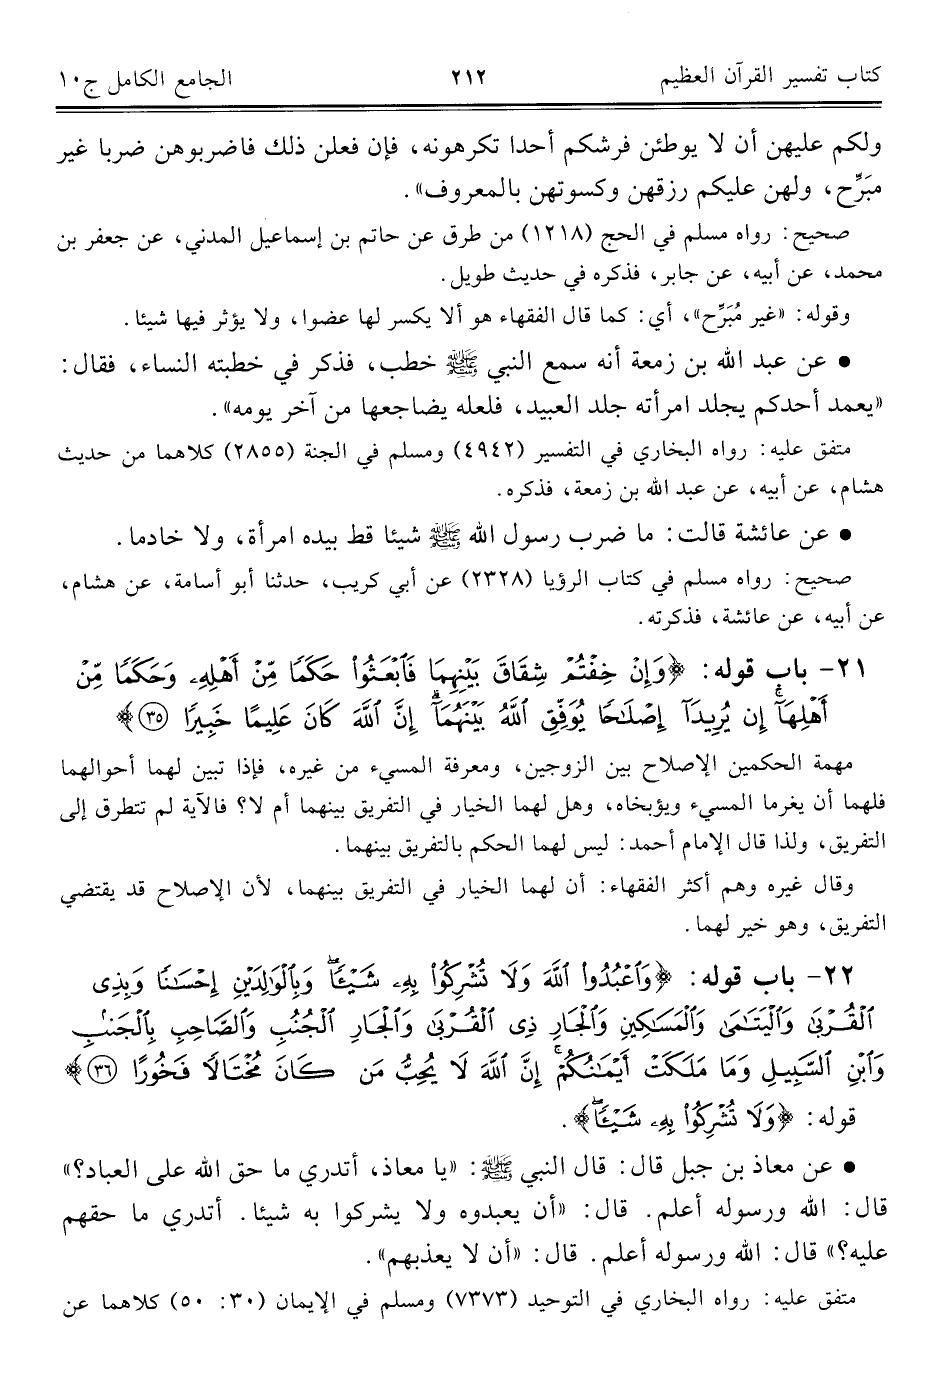 كتاب تفسير القرآن العظيم ٢١٢ الجامع الكامل ج١٠
ولكم عليهن أن لا يوطئن فرشكم أحدا تكرهونه، فإن فعلن ذلك فاضربوهن ضربا غير
مبَرِّح، ولهن عليكم رزقهن وكسوتهن بالمعروف».
صحيح: رواه مسلم في الحج (١٢١٨) من طرق عن حاتم بن إسماعيل المدني، عن جعفر بن
محمد، عن أبيه، عن جابر، فذكره في حديث طويل.
وقوله: «غير مُبَرِّح»، أي: كما قال الفقهاء هو ألا يكسر لها عضوا، ولا يؤثر فيها شيئا.
• عن عبد الله بن زمعة أنه سمع النبي ﷺ خطب، فذكر في خطبته النساء، فقال:
«يعمد أحدكم يجلد امرأته جلد العبيد، فلعله يضاجعها من آخر يومه».
متفق عليه: رواه البخاري في التفسير (٤٩٤٢) ومسلم في الجنة (٢٨٥٥) كلاهما من حديث
هشام، عن أبيه، عن عبد الله بن زمعة، فذكره.
• عن عائشة قالت: ما ضرب رسول الله ﷺ شيئا قط بيده امرأة، ولا خادما.
صحيح: رواه مسلم في كتاب الرؤيا (٢٣٢٨) عن أبي كريب، حدثنا أبو أسامة، عن هشام،
عن أبيه، عن عائشة، فذكرته.
٢١- باب قوله: ﴿وَإِنْ خِفْتُمْ شِقَاقَ بَيْنِهِمَا فَٱبْعَثُوا۟ حَكَمًا مِّنْ أَهْلِهِۦ وَحَكَمًا مِّنْ
أَهْلِهَآ ۚ إِن يُرِيدَآ إِصْلَٰحًا يُوَفِّقِ ٱللَّهُ بَيْنَهُمَآ ۗ إِنَّ ٱللَّهَ كَانَ عَلِيمًا خَبِيرًا ٣٥﴾
مهمة الحكمين الإصلاح بين الزوجين، ومعرفة المسيء من غيره، فإذا تبين لهما أحوالهما
فلهما أن يغرما المسيء ويؤبخاه، وهل لهما الخيار في التفريق بينهما أم لا؟ فالآية لم تتطرق إلى
التفريق، ولذا قال الإمام أحمد: ليس لهما الحكم بالتفريق بينهما.
وقال غيره وهم أكثر الفقهاء: أن لهما الخيار في التفريق بينهما، لأن الإصلاح قد يقتضي
التفريق، وهو خير لهما.
٢٢- باب قوله: ﴿وَٱعْبُدُوا۟ ٱللَّهَ وَلَا تُشْرِكُوا۟ بِهِۦ شَيْـًٔا ۖ وَبِٱلْوَٰلِدَيْنِ إِحْسَٰنًا وَبِذِى
ٱلْقُرْبَىٰ وَٱلْيَتَٰمَىٰ وَٱلْمَسَٰكِينِ وَٱلْجَارِ ذِى ٱلْقُرْبَىٰ وَٱلْجَارِ ٱلْجُنُبِ وَٱلصَّاحِبِ بِٱلْجَنۢبِ
وَٱبْنِ ٱلسَّبِيلِ وَمَا مَلَكَتْ أَيْمَٰنُكُمْ ۗ إِنَّ ٱللَّهَ لَا يُحِبُّ مَن كَانَ مُخْتَالًا فَخُورًا ٣٦﴾
قوله: ﴿وَلَا تُشْرِكُوا۟ بِهِۦ شَيْـًٔا ۖ﴾.
• عن معاذ بن جبل قال: قال النبي ﷺ: «يا معاذ، أتدري ما حق الله على العباد؟»
قال: الله ورسوله أعلم. قال: «أن يعبدوه ولا يشركوا به شيئا. أتدري ما حقهم
عليه؟» قال: الله ورسوله أعلم. قال: «أن لا يعذبهم».
متفق عليه: رواه البخاري في التوحيد (٧٣٧٣) ومسلم في الإيمان (٣٠: ٥٠) كلاهما عن